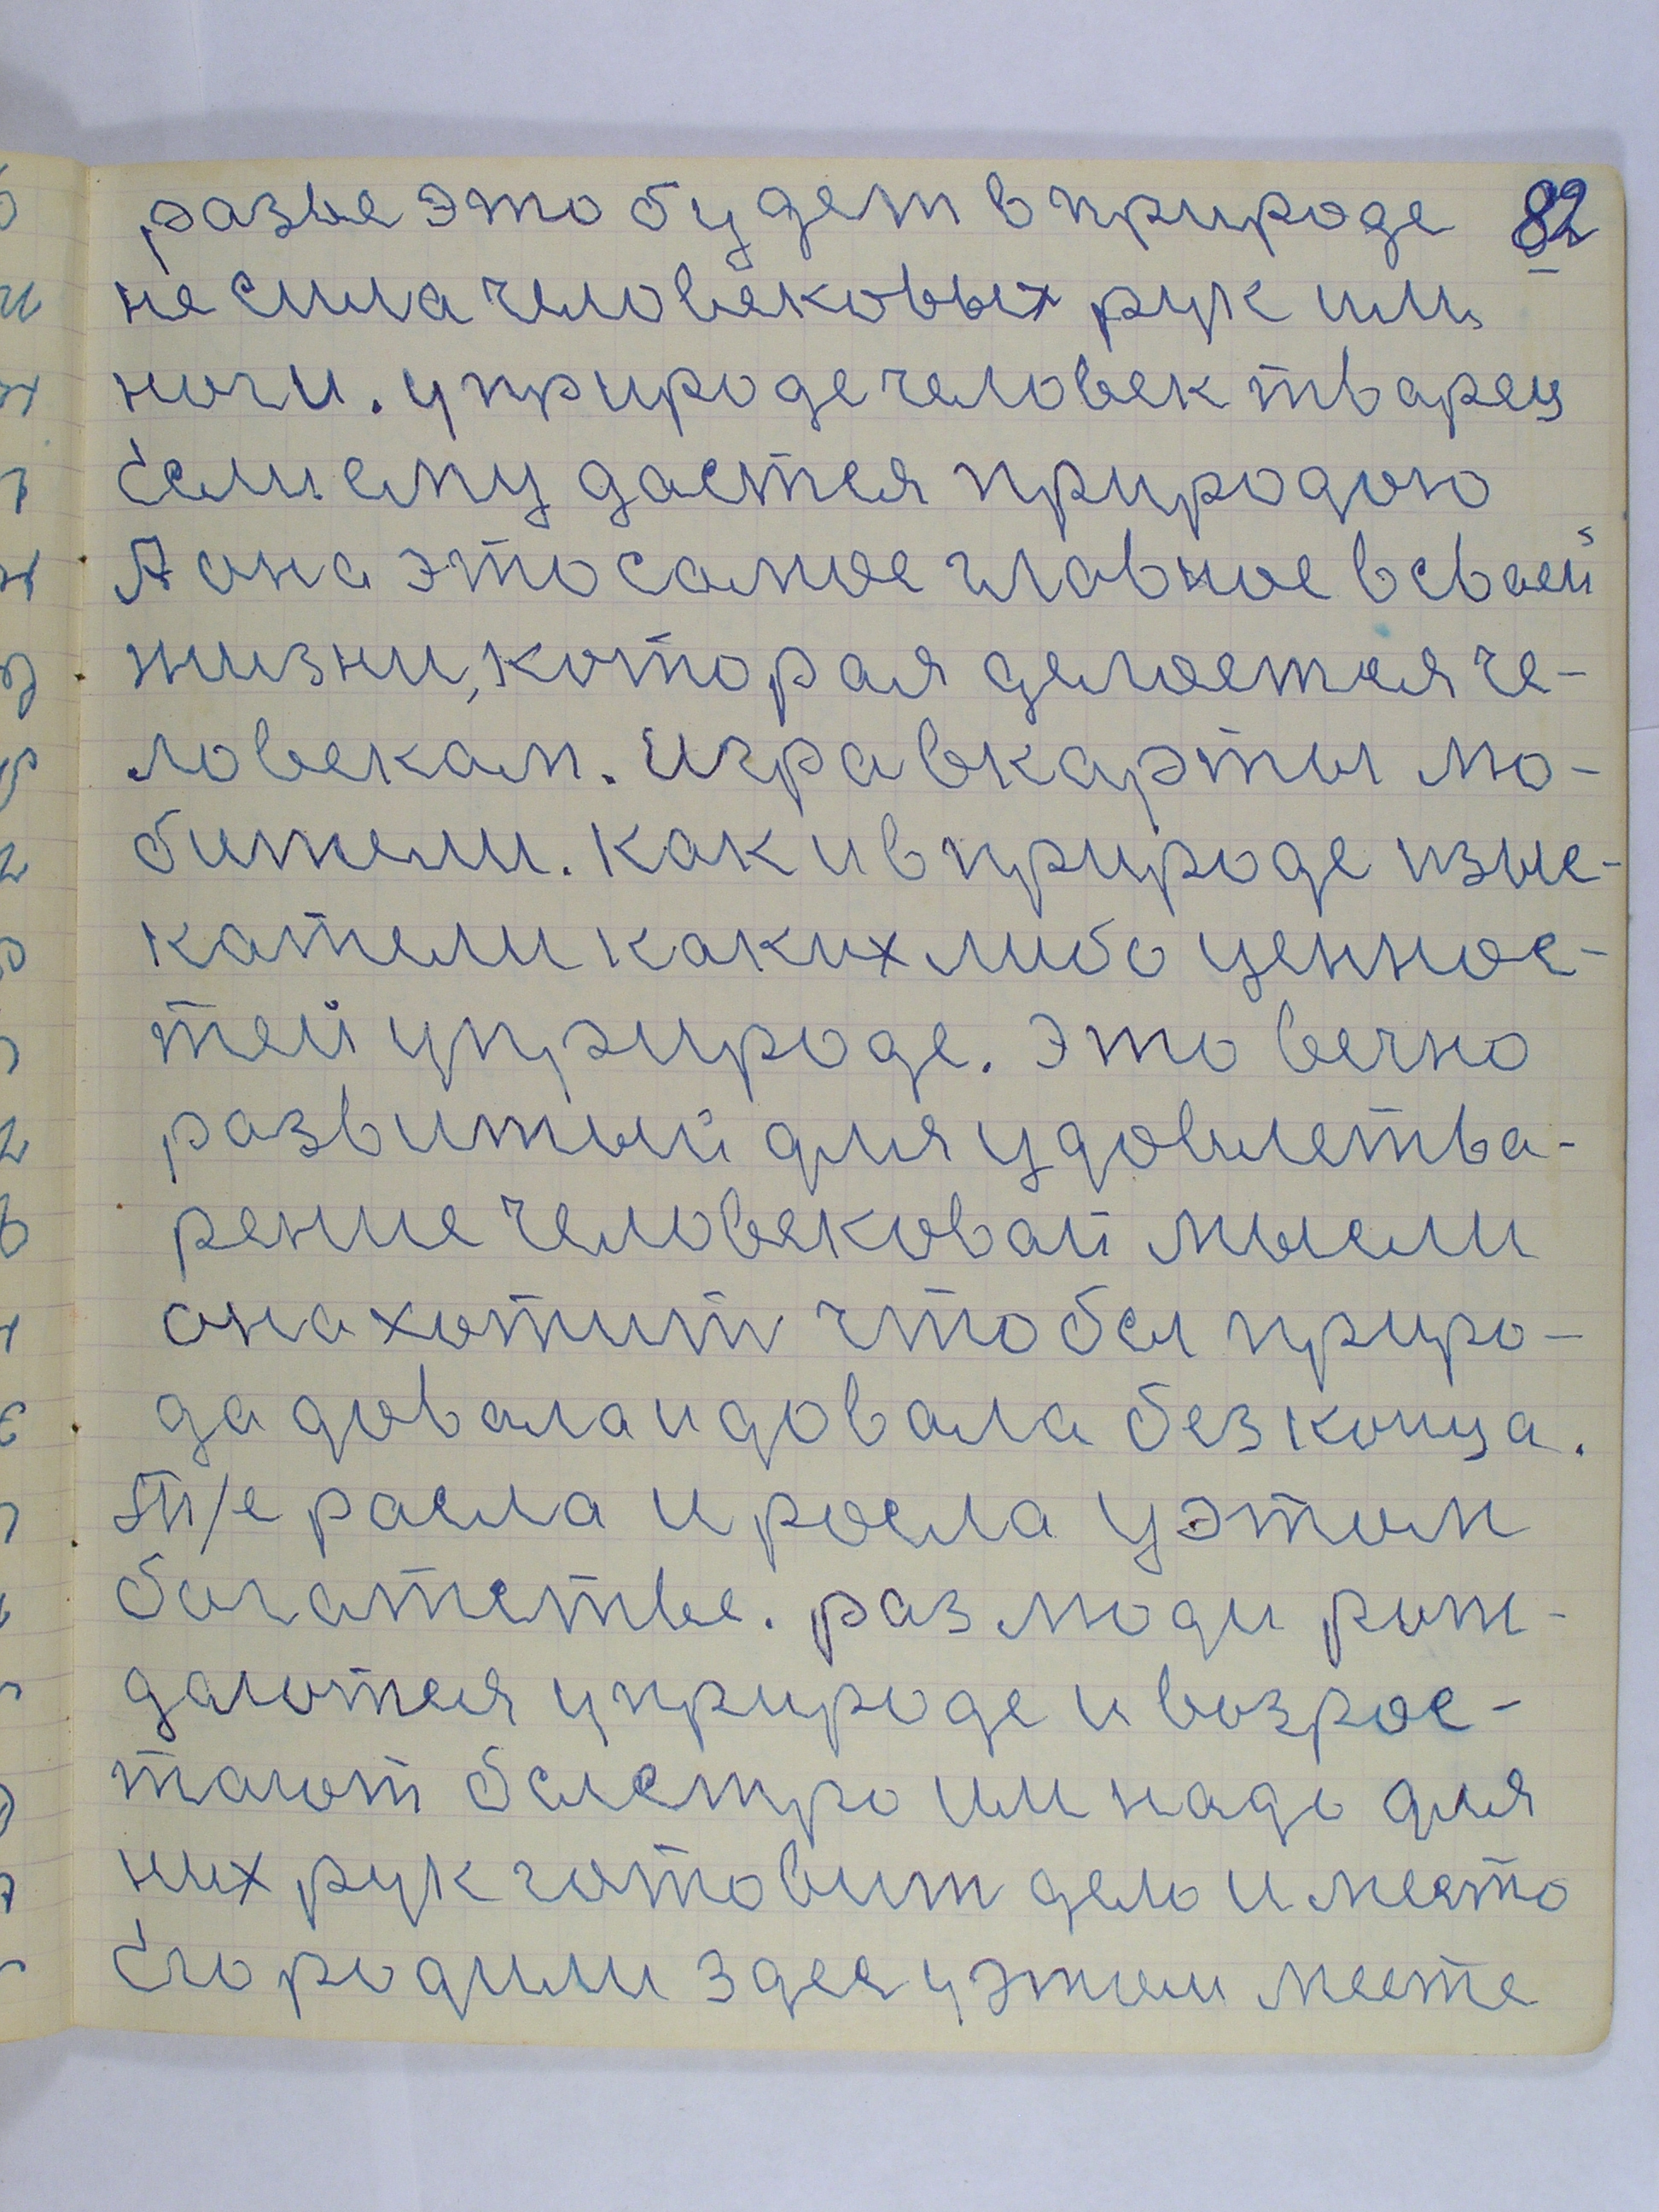 разве это будет в природе 82
не сила человековых рук или
ноги. у природе человек тварец
если ему дается природою
А она это самое главное в сваей
жизни, которая делается че-
ловекам. Игра в карты лю-
бители. как и в природе изыс-
катели каких либо ценнос-
тей у природе. Это вечно
развитый для удовлетва-
рение человековай мысли
она хотит чтобы приро-
да довала и довала без конца.
Т/е расла и росла у этом
богатстве. раз люди рож-
даются у природе и возрос-
тают быстро им надо для
них рук готовит дело и место
Его родили здеся у этом месте